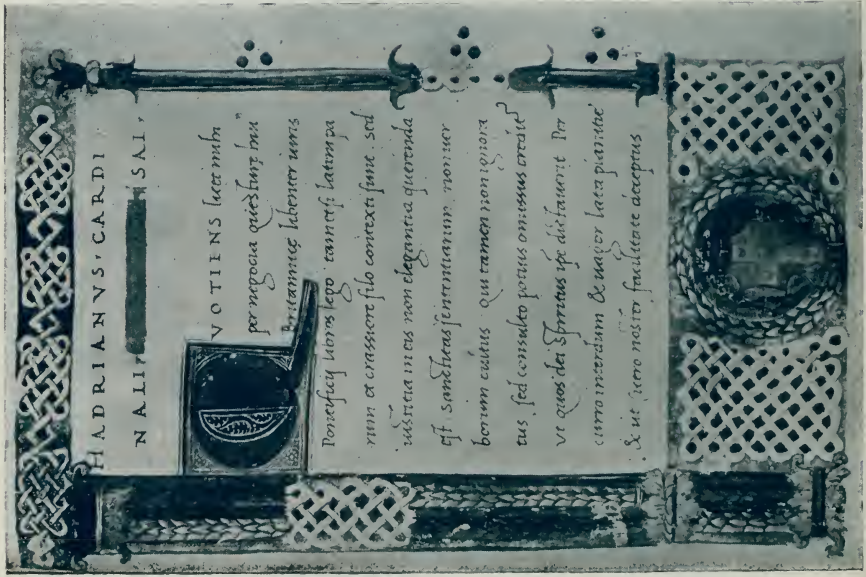 HADRIANVS · CARDI
NALI SAL ·
QVOTIENS licet mihi
per negocia
libenter iuris
Pontificij libros lego . tametsi latini pa
rum et crassiore filo contexti sunt . sed
iustitia in eis non elegantia querenda
est . Sanctitas sententiarum non uer
borum cultus . qui tamen non ignora
tus . sed consulto potius omissus
Vt quos dei Spiritus ipse dictauit . Per
curro interdum &
& ut uero noster facilitate deceptus